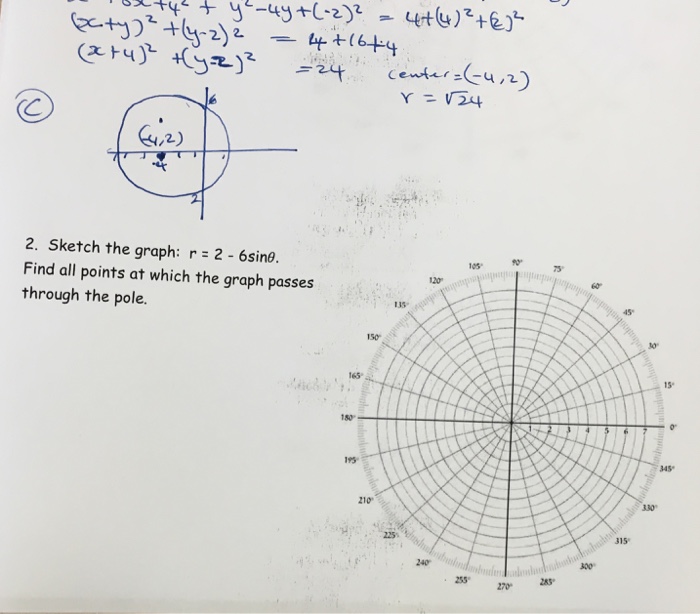 x+4² + y²-4y+(-2)² = 4+(4)²+(2)²
(x+y)² +(y-2)² = 4+16+4
(x+4)² +(y-2)² = 24 center=(-4,2)
r = √24
C
6
(-4,2)
-4
2
2. Sketch the graph: r = 2 - 6sinθ.
Find all points at which the graph passes
through the pole.
105° 90° 75°
120° 60°
135 45°
150° 30°
165° 15°
180° 1 2 3 4 5 6 7 0°
195° 345°
210° 330°
225° 315°
240° 300°
255° 270° 285°